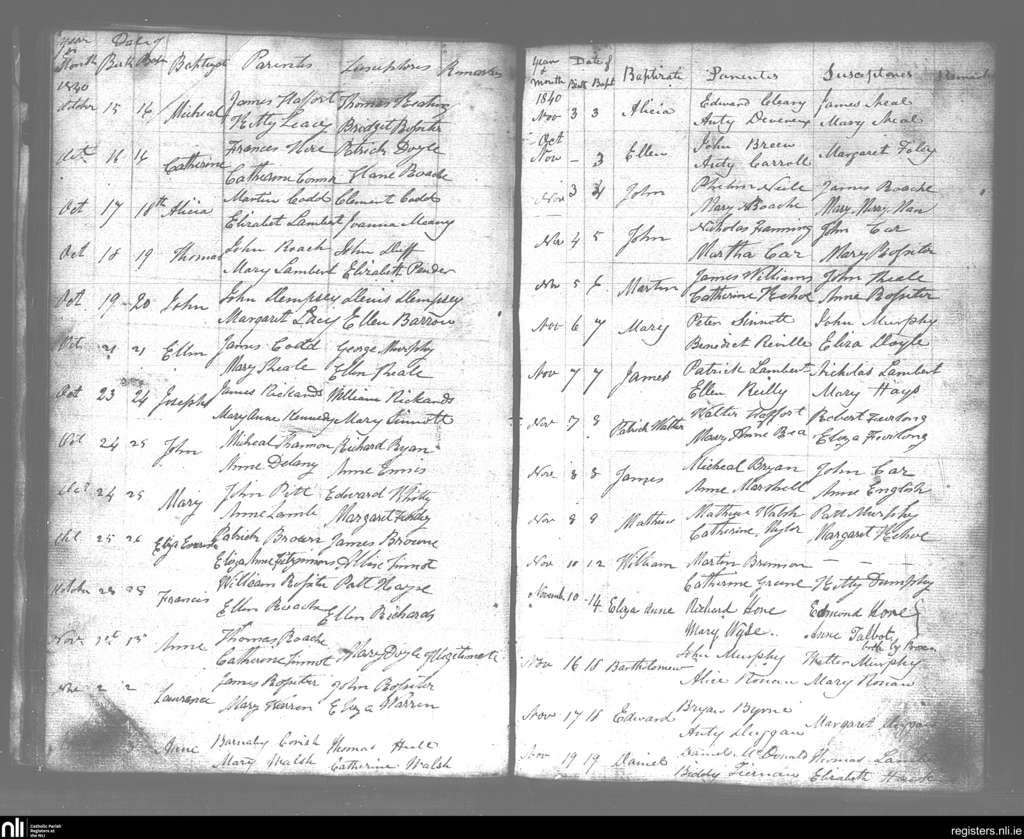 Year & Month Date of
Birth Bap Baptized Parents Susceptores Remarks
1840
October 15 16 Micheal James Haffort Thomas Keating
Kitty Leacy Bridget Rossiter
Oct 16 16 Catherine Frances Hore Patrick Doyle
Catherine Connor Jane Roache
Oct 17 18th Alicia Martin Codd Clement Codd
Elizabet Lambert Joanna Meany
Oct 18 19 Thomas John Roach John Duff
Mary Lambert Elizabeth Pender
Oct 19 20 John John Dempsey Denis Dempsey
Margaret Lacy Ellen Barrow
Oct 21 21 Ellen James Codd George Murphy
Mary Neale Ellen Neale
Oct 23 24 Joseph James Rickands William Rickands
Mary Anne Kennedy Mary Sinnott
Oct 24 25 John Micheal Richard Ryan
Anne Delany Anne Ennis
Oct 24 25 Mary John Pitt Edward Whitty
Anne Lamb Margaret
Oct 25 26 Eliza Patrick Brown James Browne
Eliza Anne Fitzsimons Sinnot
October 28 29 Francis William Rossiter Patt Hayse
Ellen Roache Ellen Richards
Nov 1st Anne Thomas Roache
Catherine Sinnot Mary Doyle Illegitimate
Nov 2 2 Lawrence James Rossiter John Rossiter
Mary Warren Eliza Warren
Anne Barnaby Corish Thomas
Mary Walsh Catherine Walsh
Year & Month Date of
Birth Bapt Baptizate Parentes Susceptores Remarks
1840
Nov 3 3 Alicia Edward Cleary James Neal
Anty Devereux Mary Neal
Oct
Nov – 3 Ellen John Breen Margaret Foley
Anty Carroll
Nov 3 4 John Phelim Neile James Roache
Mary Roache Mary
Nov 4 5 John Nicholas Fanning John Car
Martha Car Mary Rossiter
Nov 5 6 Martin James Williams John Neale
Catherine Kehoe Anne Rossiter
Nov 6 7 Mary Peter Sinnott John Murphy
Benedict Reville Eliza Doyle
Nov 7 7 James Patrick Lambert Nicholas Lambert
Ellen Reilly Mary Hays
Nov 7 8 Patrick Walter Walter Haffort Robert Furlong
Mary Anne Rea Eliza Furlong
Nov 8 8 James Micheal Bryan John Car
Anne Marshell Anne English
Nov 8 8 Mathew Mathew Walsh Patt Murphy
Catherine Naylor Margaret Kehoe
Nov 10 12 William Martin Brennon – – –
Catherine Grene Kitty Dumphy
November 10 14 Eliza Anne Richard Hore Edmond Hore
Mary Anne Talbot both by Proxe
Nov 16 18 Bartholomew John Murphy Walter Murphy
Alice Ronan Mary Ronan
Nov 17 18 Edward Bryan Byrne Margaret Duggan
Anty Duggan
Nov 19 19 Daniel Daniel McDonald Thomas
Biddy Tiernan Elizabeth
nli Catholic Parish
Registers at
the NLI
registers.nli.ie